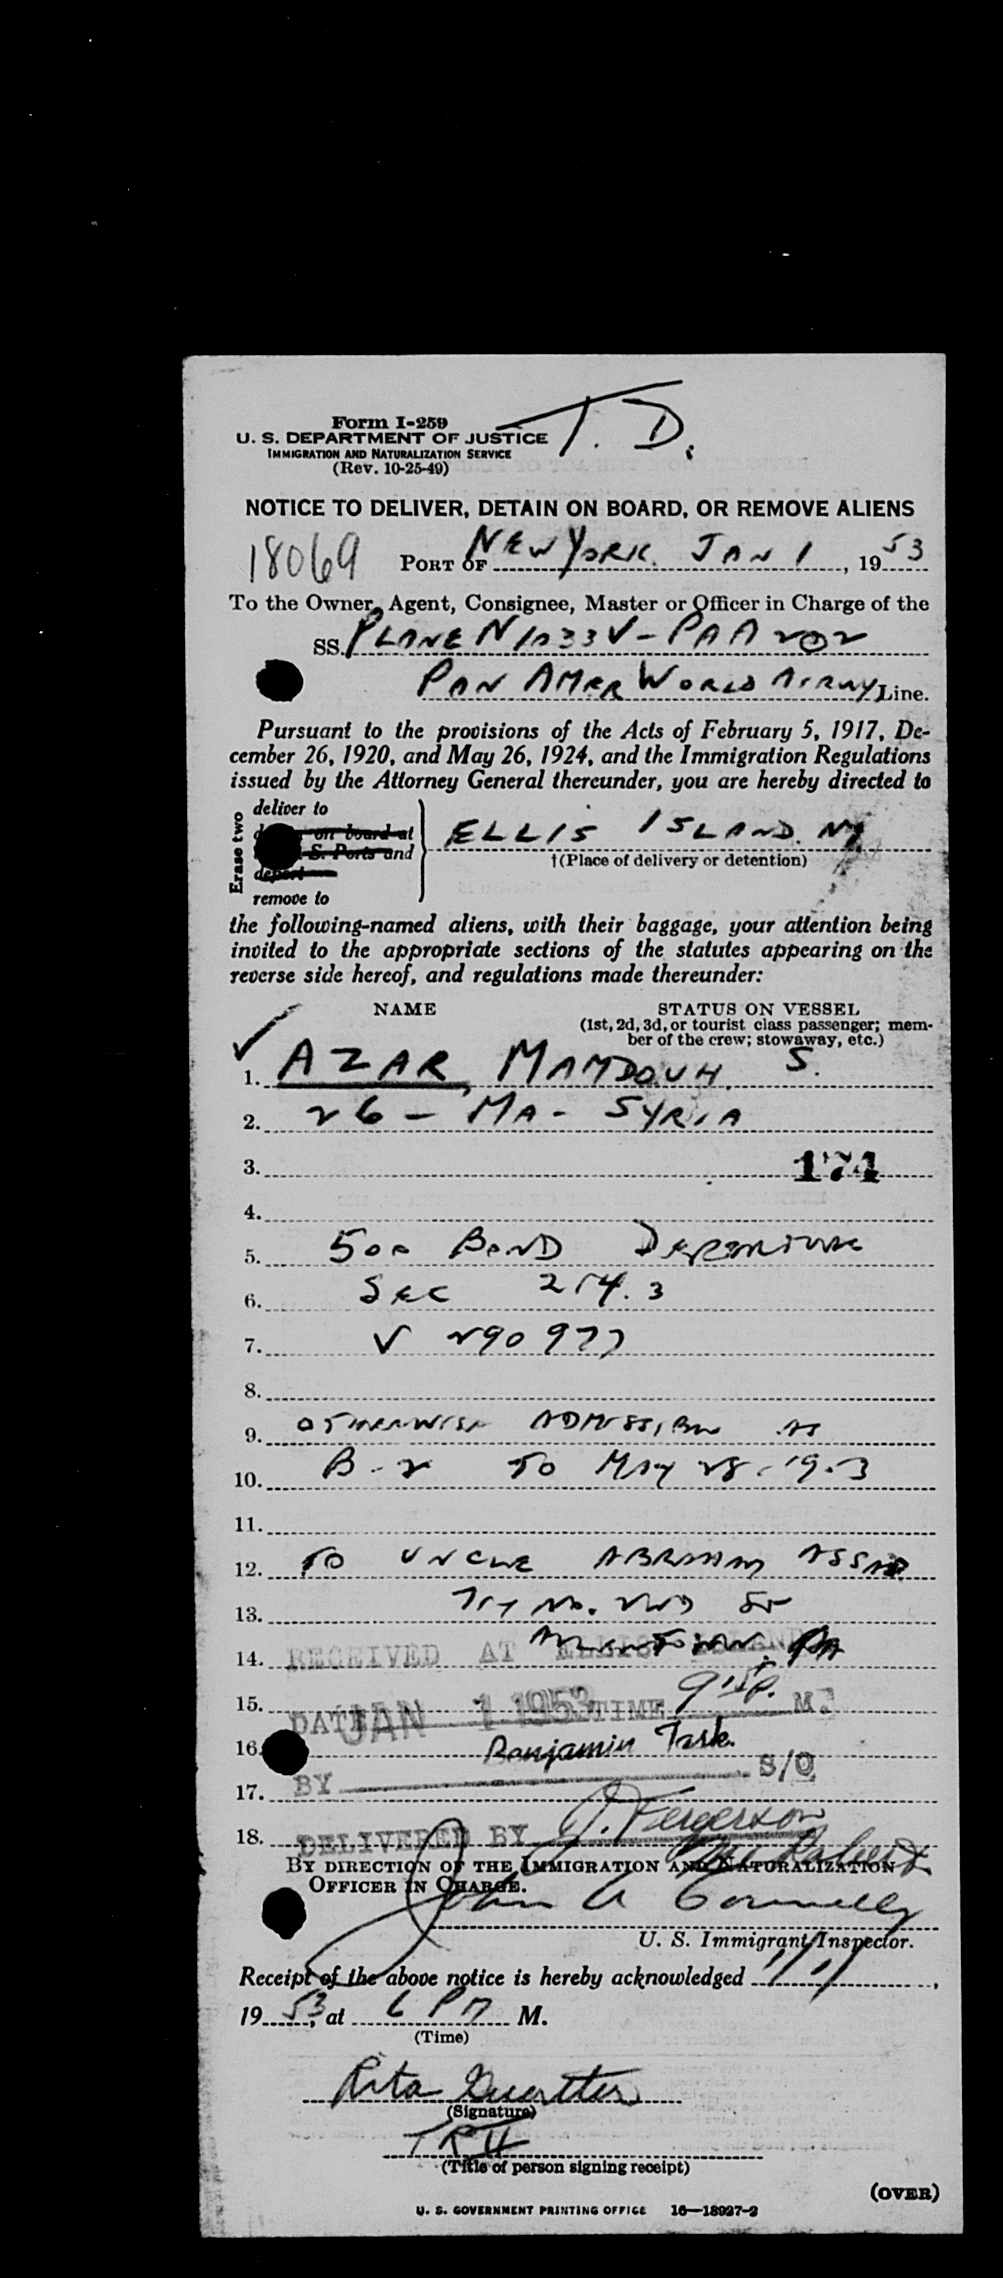 T. D.
Form I-259
U. S. DEPARTMENT OF JUSTICE
IMMIGRATION AND NATURALIZATION SERVICE
(Rev. 10-25-49)
NOTICE TO DELIVER, DETAIN ON BOARD, OR REMOVE ALIENS
18069 PORT OF NEW YORK. JAN 1, 1953
To the Owner, Agent, Consignee, Master or Officer in Charge of the
SS. PLANE N1033V - PAA 202
PAN AMER WORLD AIRWY Line.
Pursuant to the provisions of the Acts of February 5, 1917, De-
cember 26, 1920, and May 26, 1924, and the Immigration Regulations
issued by the Attorney General thereunder, you are hereby directed to
Erase two
deliver to
on board at
S. Ports and
deport
remove to
ELLIS ISLAND. NY.
†(Place of delivery or detention)
the following-named aliens, with their baggage, your attention being
invited to the appropriate sections of the statutes appearing on the
reverse side hereof, and regulations made thereunder:
NAME STATUS ON VESSEL
(1st, 2d, 3d, or tourist class passenger; mem-
ber of the crew; stowaway, etc.)
1. AZAR, MAMDOUH. S.
2. 26 - MA - SYRIA
3. 174
4.
5. 500 BOND DEPARTURE
6. SEC 214.3
7. V 290977
8.
9. OTHERWISE ADMISSIBLE AS
10. B-2 TO MAY 28-1953
11.
12. TO UNCLE ABRAHAM ASSAD
13. No. 2ND ST
14. ALLENTOWN. PA
RECEIVED AT ELLIS ISLAND
15. DATE JAN 1 1953 TIME 9 15 P. M.
16. Benjamin Task.
17. BY S/O
18. DELIVERED BY J. Fergerson
BY DIRECTION OF THE IMMIGRATION AND NATURALIZATION
OFFICER IN CHARGE.
John A Connelly
U. S. Immigrant Inspector.
Receipt of the above notice is hereby acknowledged 1/1/,
1953, at 6 PM M.
(Time)
Rita
(Signature)
(Title of person signing receipt)
(OVER)
U. S. GOVERNMENT PRINTING OFFICE 16—18927-2